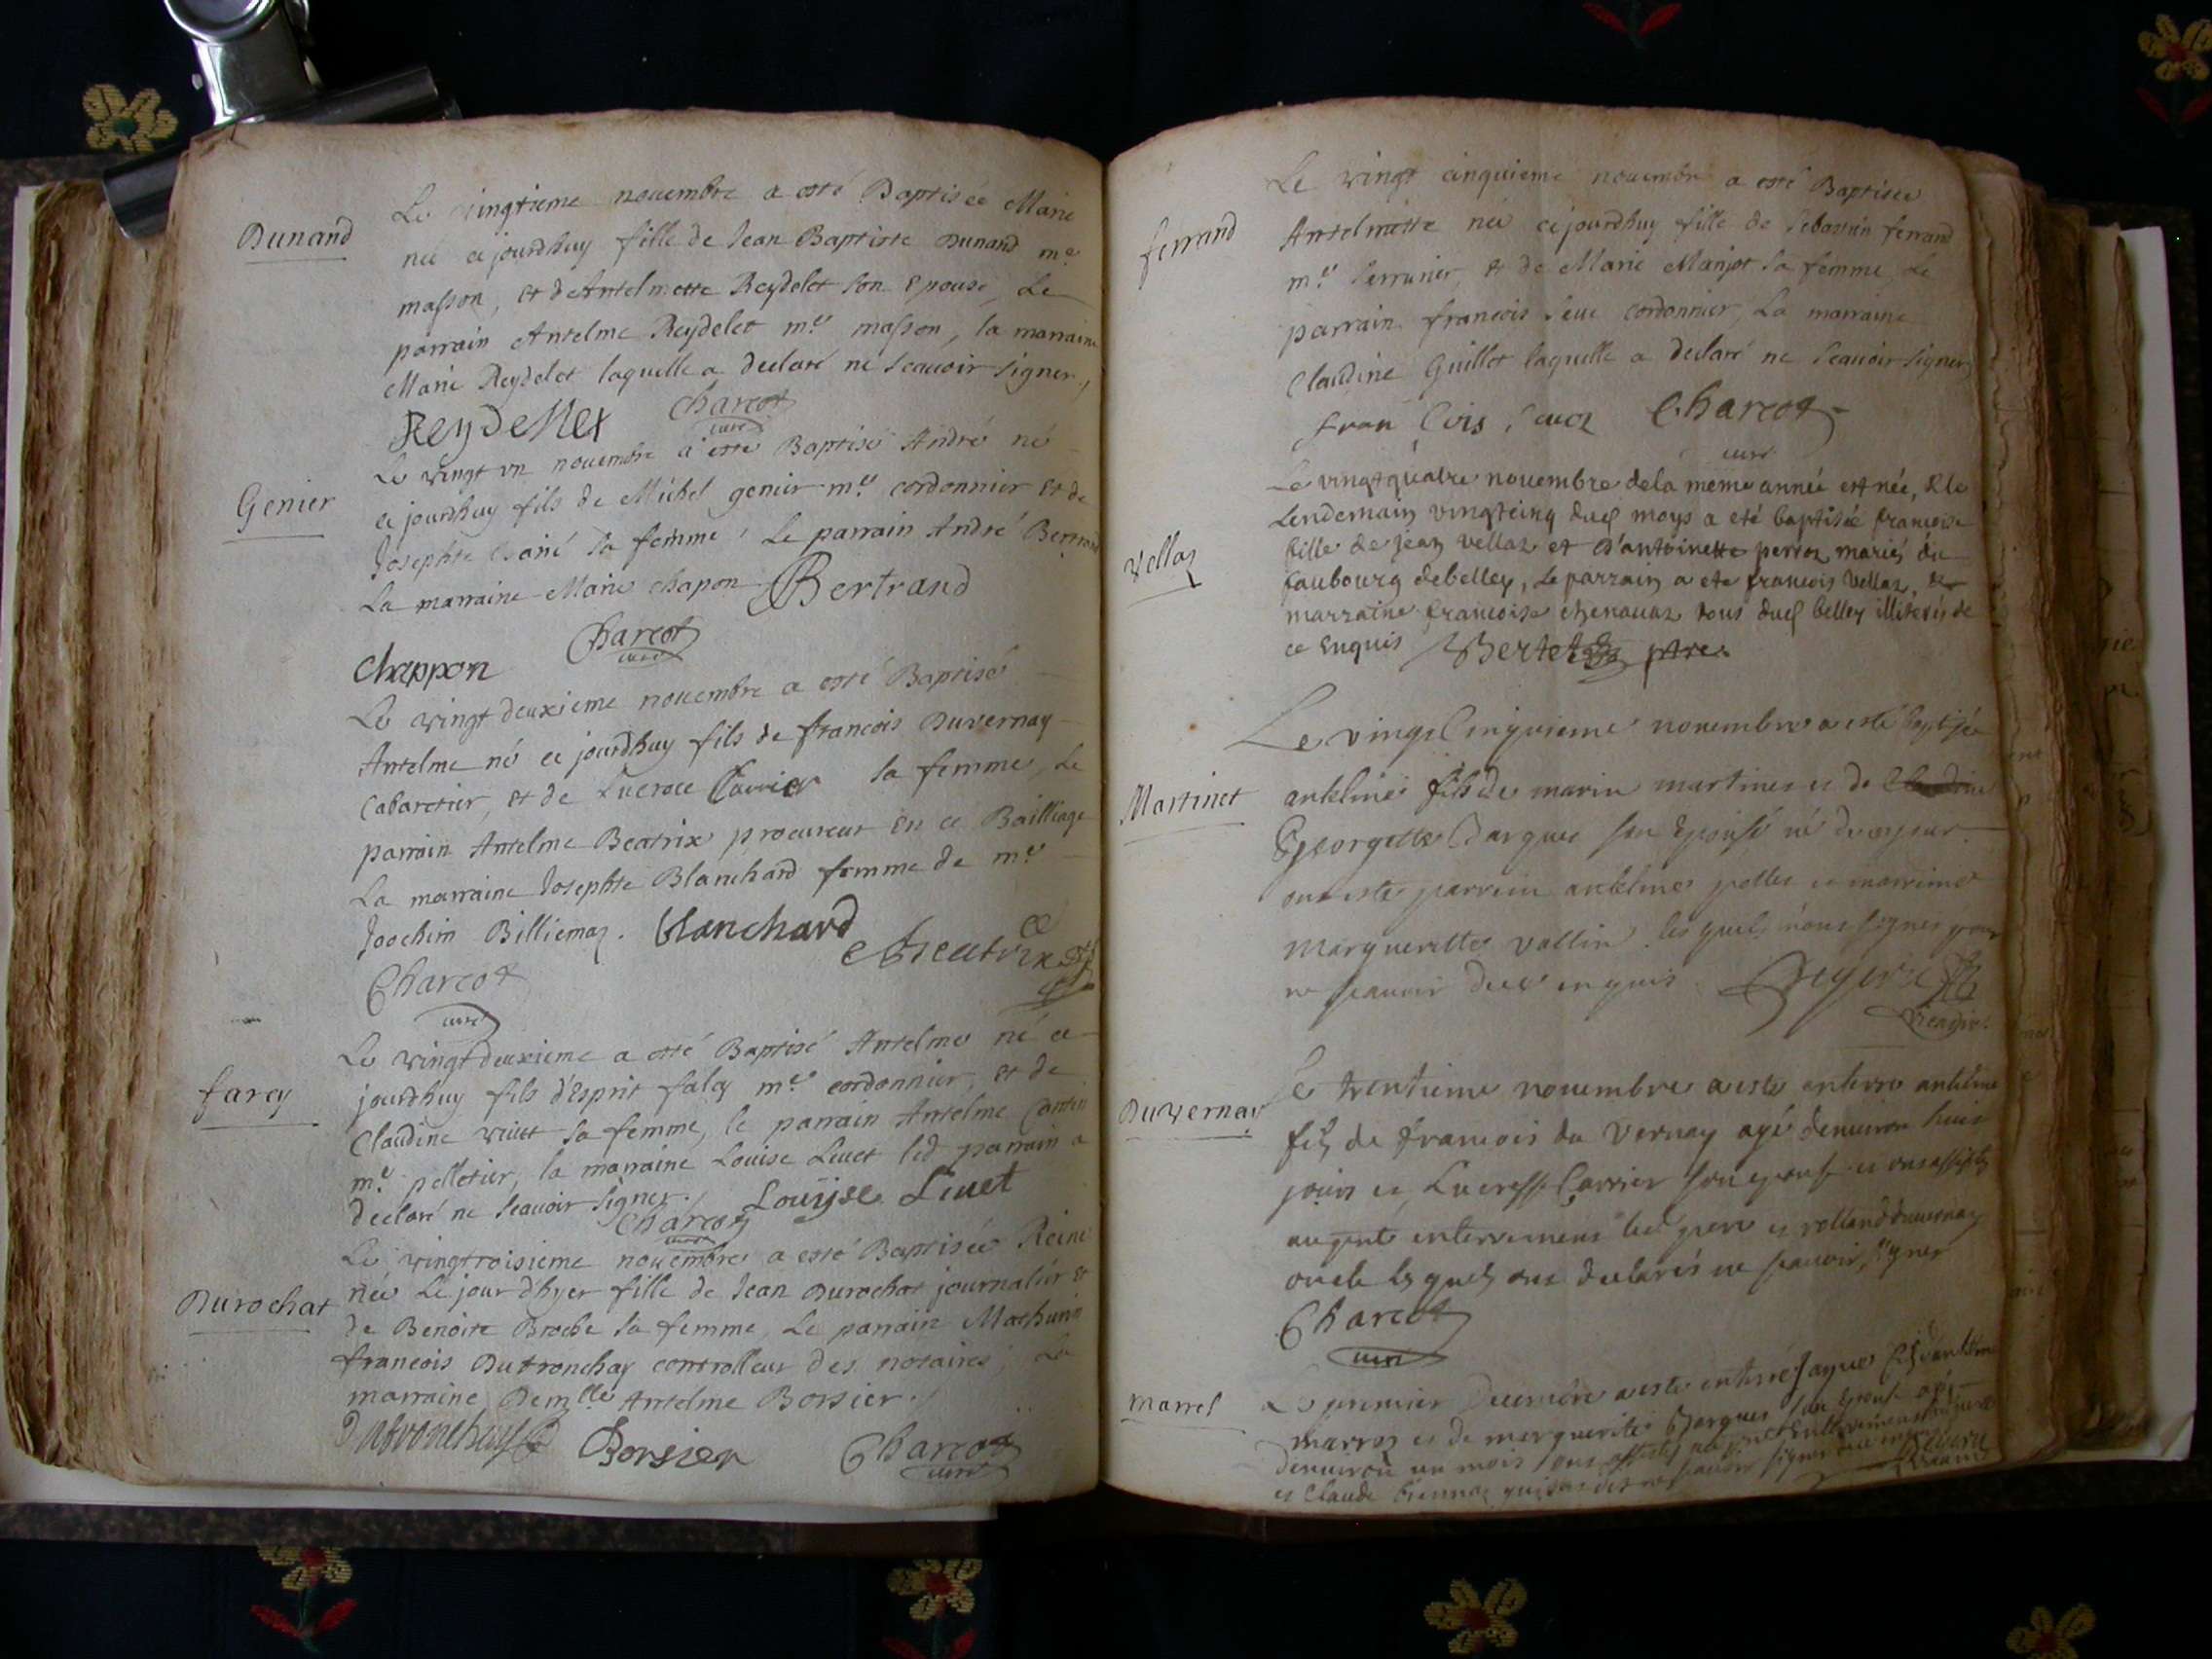 Dunand
Le vingtieme nouembre a esté Baptisée Marie
née ce jourdhuy fille de Jean Baptiste Dunand me
masson, et de Antelmette Reydelet son Epouse, Le
parrain Antelme Reydelet me masson, la marraine
Marie Reydelet laquelle a declaré ne scauoir signer
Reydellet Charcot
curé
Genier
Le vingt vn nouembre a esté Baptisé André né
ce jourdhuy fils de Michel genier me cordonnier et de
Josephte sa femme, Le parrain André Bertrand
La marraine Marie chapon Bertrand
Chappon Charcot
curé
Le vingt deuxieme nouembre a esté Baptisé
Antelme né ce jourdhuy fils de francois Duvernay
Cabaretier, et de Lucrece Carrier sa femme, Le
parrain Antelme Beatrix procureur en ce Bailliage
La marraine Josephte Blanchard femme de me
Joachim Billiemaz. blanchard
Beatrix
Charcot
curé
farcy
Le vingt deuxieme a esté Baptisé Antelme né ce
jourdhuy fils d'Esprit falcy me cordonnier, et de
Claudine sa femme, le parrain Antelme
me pelletier, la marraine Louise Liuet led parrain a
declaré ne scauoir signer. Louyse Liuet
Charcot
curé
Durochat
Le vingtroisieme nouembre a esté Baptisée Reine
née Le jour d'hyer fille de Jean Durochat journalier et
de Benoite Broche sa femme, Le parrain Mathurin
francois Dutronchay controlleur des notaires, La
marraine Demlle Antelme Borsier.
Dutronchay Borsier Charcot
curé
ferrand
Le vingt cinquieme nouembre a esté Baptisée
Antelmette née cejourdhuy fille de Sebastien ferrand
me serrurier, et de Marie Manjot sa femme, Le
parrain francois cordonnier, La marraine
Claudine Guillot laquelle a declaré ne scauoir signer
francois Charcot
curé
Vellaz
Le vingtquatre nouembre de la meme année est née, & le
Lendemain vingtcinq dud moys a eté baptisée françoise
fille de jean vellaz et d'antoinette perroz mariés du
faubourg de belley, Le parrain a ete francois Vellaz, &
marraine francoise chenauaz tous dud belley illiterés de
ce Enquis Bertet ptre
Martinet
Le vingt Cinquieme nouembre a esté baptisé
antelme fils de marin martinet et de
Georgette Dargue son Epouse né du
ont esté parrain antelme pollet et marraine
Marguerite vallin lesquels n'ont signé pour
ne scauoir de ce enquis
vicaire
Duvernay
Le trentieme nouembre a esté enterré antelme
fils de francois du Vernay agé denuiron huit
jours et Lucresse Carrier son epouse et ont assisté
au present enterrement led pere et rolland duuernay
oncle lesquels ont declarés ne scauoir signer
Charcot
curé
Marrel
Le premier Decembre a esté enterré Jaque fils d'anthelme
marroz et de marguerite son Epouse agé
denuiron un mois ont assistés au present enterrement
et Claude ne scauoir signer de ce enquis
vicaire